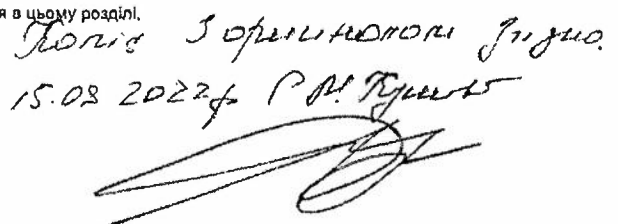 я в цьому розділі,
Копія з оригіналом згідно.
15.09 2022р